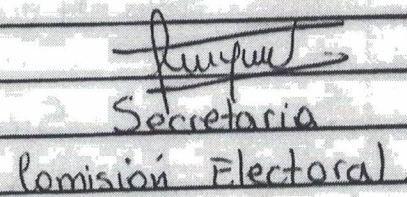 Secretaria
Comisión Electoral